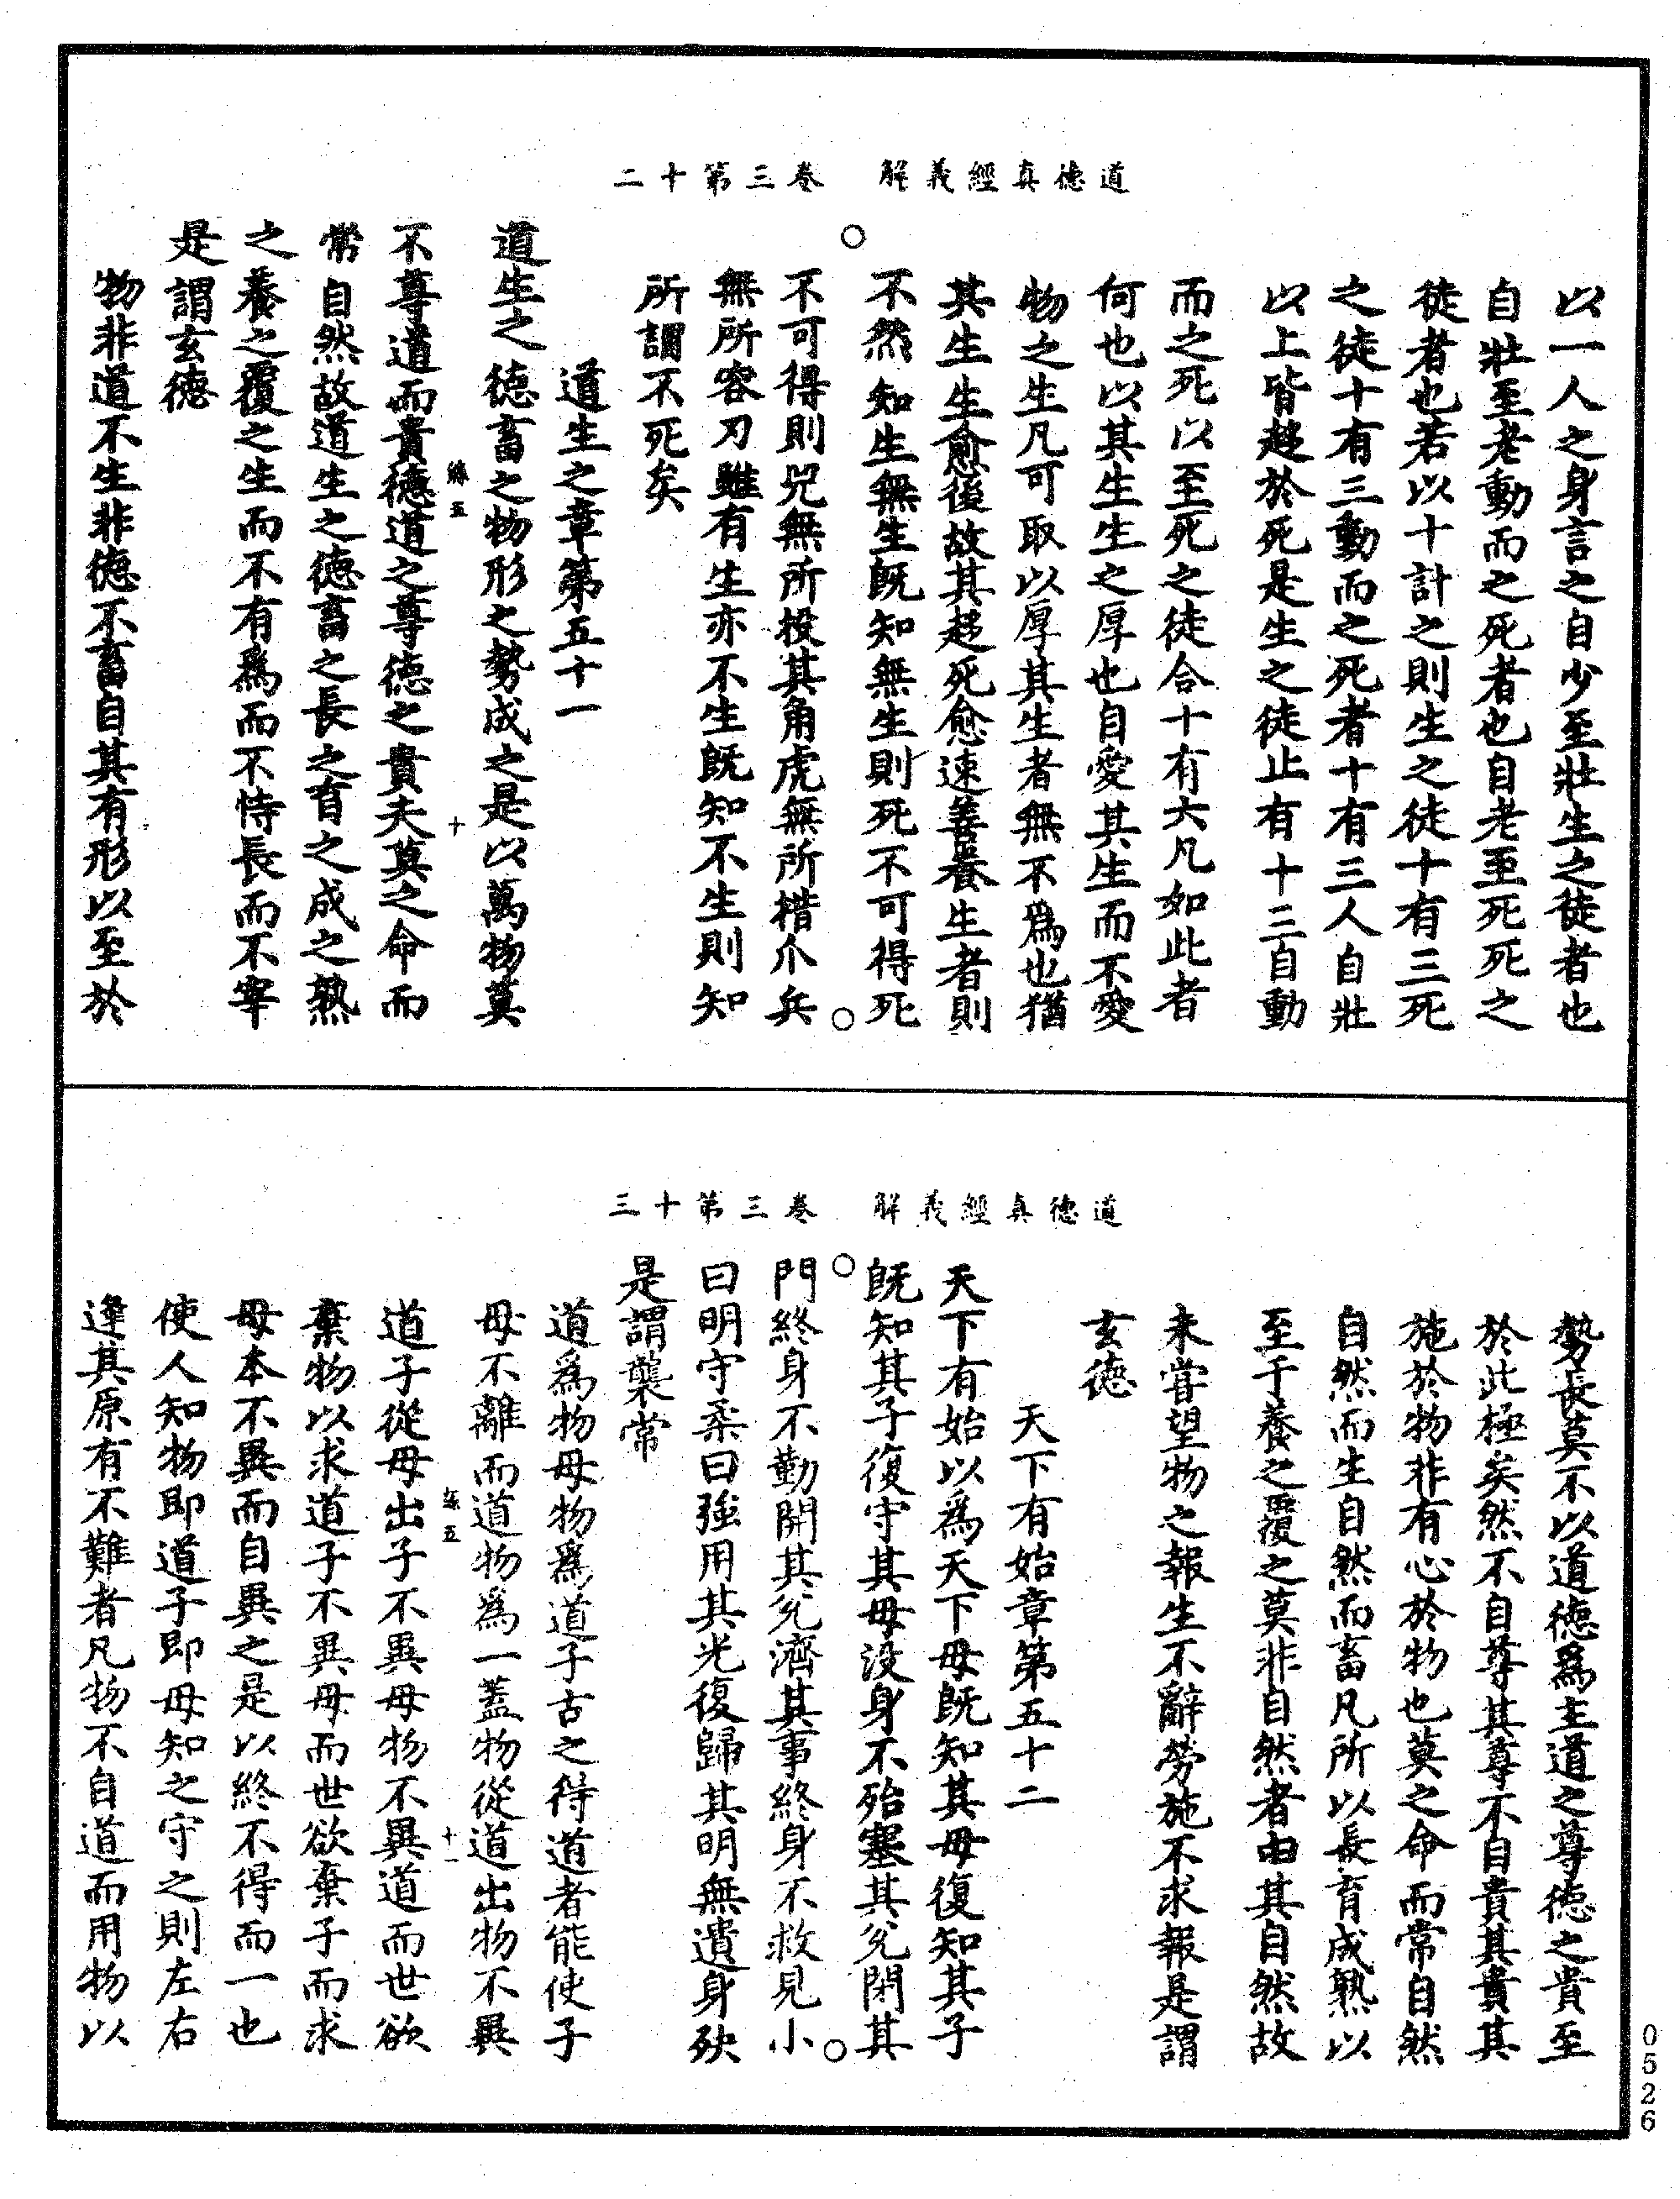 道德真經義解　卷三第十二
以一人之身言之自少至壯生之徒者也
自壯至老動而之死者也自老至死死之
徒者也若以十計之則生之徒十有三死
之徒十有三動而之死者十有三人自壯
以上皆趍於死是生之徒止有十三自動
而之死以至死之徒合十有六凡如此者
何也以其生生之厚也自愛其生而不愛
物之生凡可取以厚其生者無不爲也猶
其生生愈後故其趍死愈速善養生者則
不然知生無生旣知無生則死不可得死
不可得則兕無所投其角虎無所措爪兵
無所容刃雖有生亦不生旣知不生則知
所謂不死矣
道生之章第五十一
道生之德畜之物形之勢成之是以萬物莫
不尊道而貴德道之尊德之貴夫莫之命而
常自然故道生之德畜之長之育之成之熟
之養之覆之生而不有爲而不恃長而不宰
是謂玄德
物非道不生非德不畜自其有形以至於
道德真經義解　卷三第十三
勢長莫不以道德爲主道之尊德之貴至
於此極矣然不自尊其尊不自貴其貴其
施於物非有心於物也莫之命而常自然
自然而生自然而畜凡所以長育成熟以
至于養之覆之莫非自然者由其自然故
未甞望物之報生不辭勞施不求報是謂
玄德
天下有始章第五十二
天下有始以爲天下母旣知其母復知其子
旣知其子復守其母没身不殆塞其兊閉其
門終身不勤開其兊濟其事終身不救見小
曰明守柔曰強用其光復歸其明無遺身殃
是謂襲常
道爲物母物爲道子古之得道者能使子
母不離而道物爲一蓋物從道出物不異
道子從母出子不異母物不異道而世欲
棄物以求道子不異母而世欲棄子而求
母本不異而自異之是以終不得而一也
使人知物即道子即母知之守之則左右
逢其原有不難者凡物不自道而用物以
0526